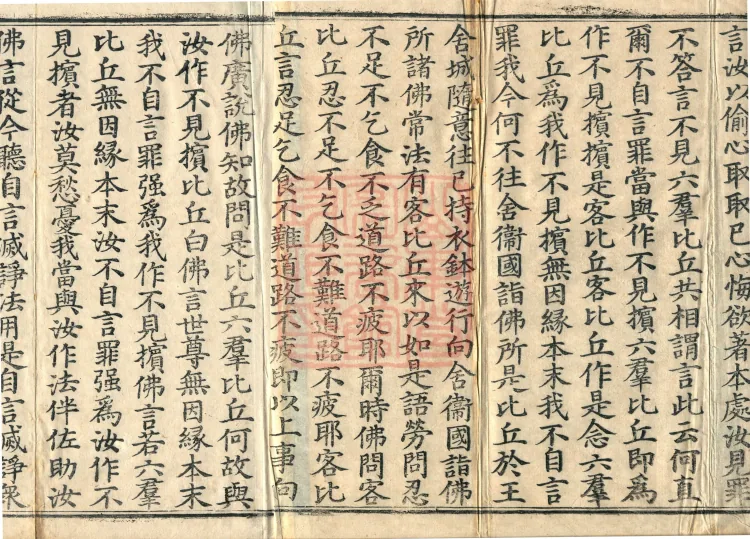 言汝以偷心取取已心悔欲著本處汝見罪
不答言不見六羣比丘共相謂言此云何直
爾不自言罪當與作不見擯六羣比丘即為
作不見擯擯是客比丘客比丘作是念六羣
比丘為我作不見擯無因緣本末我不自言
罪我今何不往舍衛國詣佛所是比丘於王
舍城隨意住已持衣鉢遊行向舍衛國詣佛
所諸佛常法有客比丘來以如是語勞問忍
不足不乞食不乏道路不疲耶爾時佛問客
比丘忍不足不乞食不難道路不疲耶客比
丘言忍足乞食不難道路不疲即以上事向
佛廣說佛知故問是比丘六羣比丘何故與
汝作不見擯比丘白佛言世尊無因緣本末
我不自言罪强為我作不見擯佛言若六羣
比丘無因緣本末汝不自言罪强為汝作不
見擯者汝莫愁憂我當與汝作法伴佐助汝
佛言從今聽自言滅諍法用是自言滅諍衆